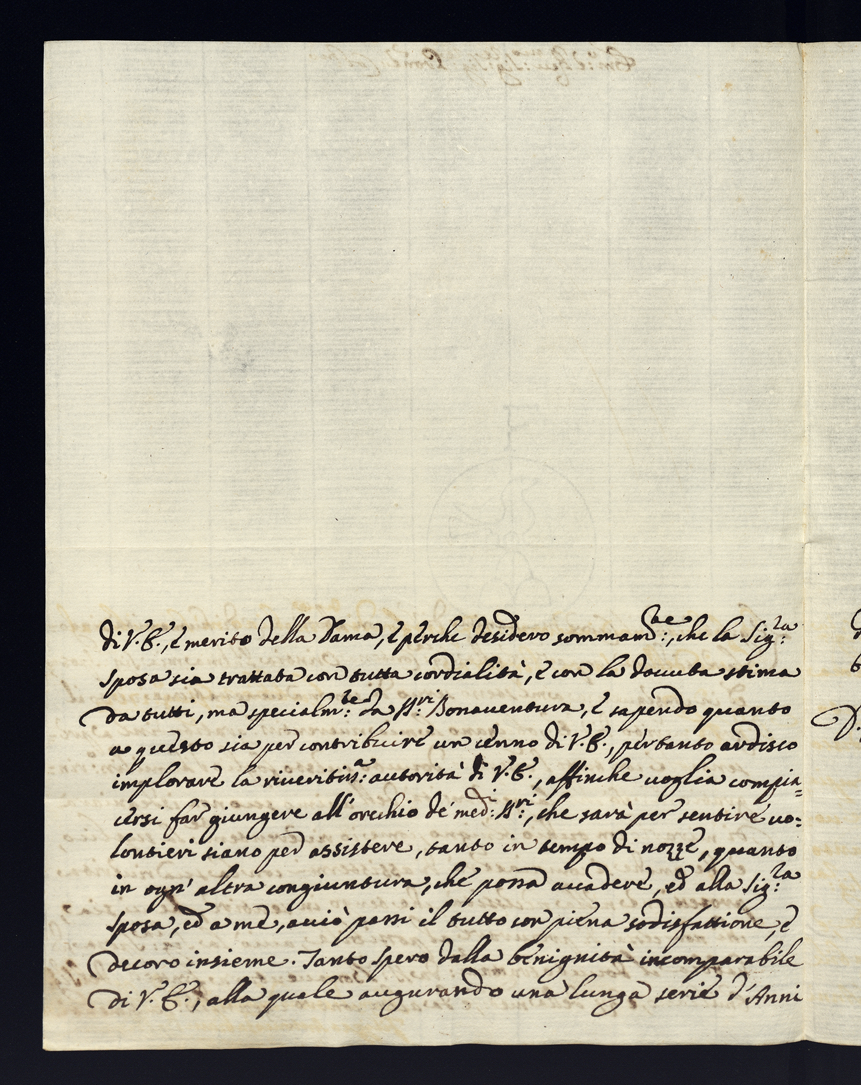 di V. E., e merito della Dama, e perche desidero sommam:te, che la Sig:ra
sposa sia trattata con tutta cordialità, e con la dovuta stima
da tutti, ma specialm:te da SS:ri Bonaventura, e sapendo quanto
a questo sia per contribuire un cenno di V. E., pertanto ardisco
implorare la riveritis:a autorità di V. E., affinche voglia compia=
cersi far giungere all'orechio de' med:i SS:ri, che sarà per sentire vo=
lontieri siano per assistere, tanto in tempo di nozze, quanto
in ogn' altra congiuntura, che possa accadere, ed alla Sig:ra
sposa, ed a me, acciò passi il tutto con piena sodisfattione, e
decoro insieme. Tanto spero dalla benignità incomparabile
di V. E., alla quale augurando una lunga serie d'Anni